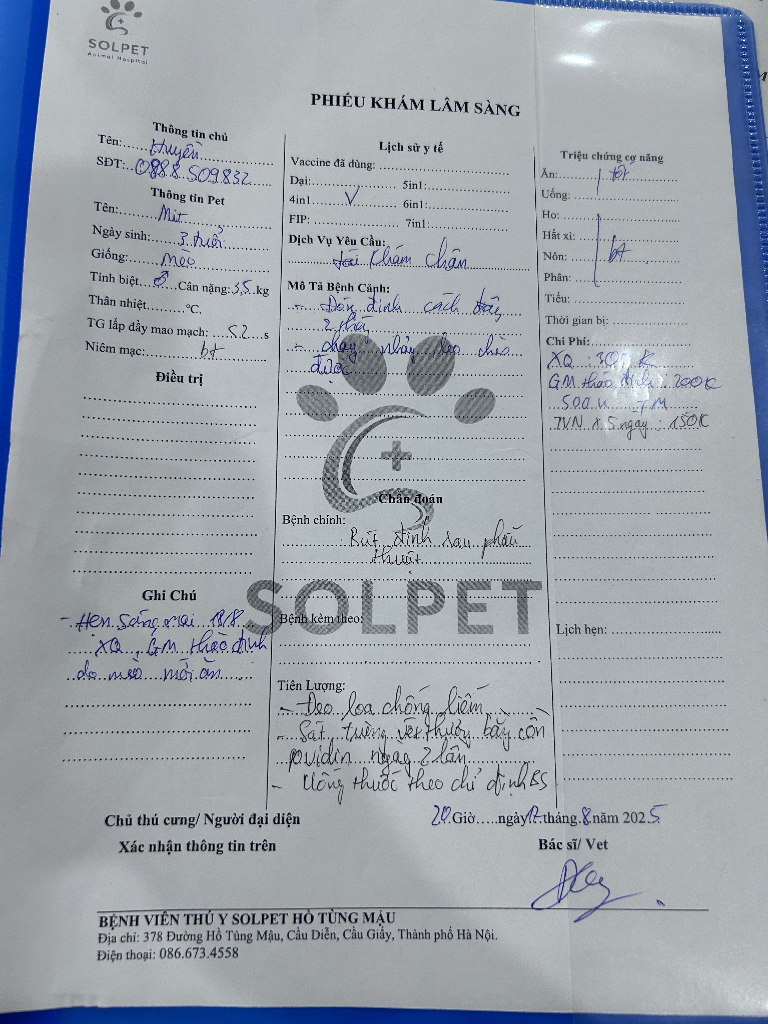 SOLPET
Animal Hospital
PHIẾU KHÁM LÂM SÀNG
Thông tin chủ
Tên: Huyền
SĐT: 0988.509832
Thông tin Pet
Tên: Mít
Ngày sinh: 3 tuổi
Giống: Mèo
Tính biệt: ♂ Cân nặng: 3,5 kg
Thân nhiệt °C.
TG lấp đầy mao mạch: <2 s
Niêm mạc: bt
Điều trị
Ghi Chú
- Hẹn sáng mai 18/8
XQ, GM tháo đinh
do mèo mới ăn
Lịch sử y tế
Vaccine đã dùng:
Dại: 5in1:
4in1 V 6in1:
FIP: 7in1:
Dịch Vụ Yêu Cầu:
tái khám chân
Mô Tả Bệnh Cảnh:
- Đóng đinh cách đây
2 tháng
- chạy nhảy leo trèo
được
Chẩn đoán
Bệnh chính:
Rút đinh sau phẫu
thuật
SOLPET
Bệnh kèm theo:
Tiên Lượng:
- Đeo loa chống liếm
- Sát trùng vết thương bằng cồn
povidin ngày 2 lần
- Uống thuốc theo chỉ định BS
Triệu chứng cơ năng
Ăn: bt
Uống:
Ho:
Hắt xì:
Nôn: bt
Phân:
Tiểu:
Thời gian bị:
Chi Phí:
XQ 300K
GM tháo đinh: 200K
500K TM
TVN x 5 ngày: 150K
Lịch hẹn:
20 Giờ.....ngày 17 tháng 8 năm 2025
Chủ thú cưng/ Người đại diện
Xác nhận thông tin trên
Bác sĩ/ Vet
BỆNH VIÊN THÚ Y SOLPET HỒ TÙNG MẬU
Địa chỉ: 378 Đường Hồ Tùng Mậu, Cầu Diễn, Cầu Giấy, Thành phố Hà Nội.
Điện thoại: 086.673.4558